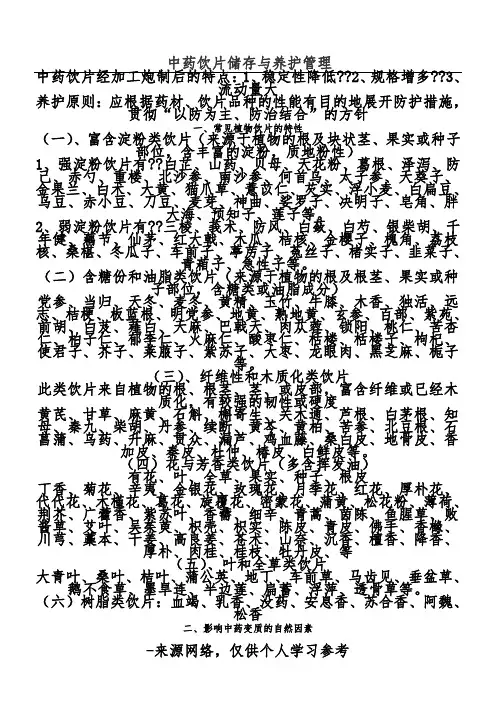 中药饮片储存与养护管理
中药饮片经加工炮制后的特点：1、稳定性降低??2、规格增多??3、
流动量大
养护原则：应根据药材、饮片品种的性能有目的地展开防护措施，
贯彻“以防为主、防治结合”的方针
一、常见植物饮片的特性
（一）、富含淀粉类饮片（来源于植物的根及块状茎、果实或种子
部位，含丰富的淀粉，质地粉性）
1、强淀粉饮片有??白芷、山药、贝母、天花粉、葛根、泽泻、防
己、赤芍、重楼、北沙参、南沙参、何首乌、太子参、天葵子、
金果兰、白术、大黄、猫爪草、薏苡仁、芡实、浮小麦、白扁豆、
乌豆、赤小豆、刀豆、麦芽、神曲、娑罗子、决明子、皂角、胖
大海、预知子、莲子等。
2、弱淀粉饮片有??三棱、莪术、防风、白蔹、白芍、银柴胡、千
年健、藕节、仙茅、红大戟、木瓜、桔核、金樱子、槐角、荔枝
核、桑椹、冬瓜子、车前子、葶苈子、菟丝子、楮实子、韭菜子、
青葙子、急性子等。
（二）含糖份和油脂类饮片（来源于植物的根及根茎、果实或种
子部位，含糖类或油脂成分）
党参、当归、天冬、麦冬、黄精、玉竹、牛膝、木香、独活、远
志、桔梗、板蓝根、明党参、地黄、熟地黄、玄参、百部、紫菀、
前胡、白芨、薤白、天麻、巴戟天、肉苁蓉、锁阳、桃仁、苦杏
仁、柏子仁、郁李仁、火麻仁、酸枣仁、栝楼、栝楼子、枸杞、
使君子、芥子、莱服子、紫苏子、大枣、龙眼肉、黑芝麻、栀子
等。
（三）、纤维性和木质化类饮片
此类饮片来自植物的根、根茎、茎、或皮部，富含纤维或已经木
质化，有较强的韧性或硬度
黄芪、甘草、麻黄、石斛、槲寄生、关木通、芦根、白茅根、知
母、秦九、柴胡、丹参、续断、黄芩、黄柏、苦参、北豆根、石
菖蒲、乌药、升麻、贯众、漏芦、鸡血藤、桑白皮、地骨皮、香
加皮、秦皮、杜仲、椿皮、白鲜皮等。
（四）花与芳香类饮片（多含挥发油）
有花、叶、全草、果实、种子、根皮
丁香、菊花、辛夷、金银花、玫瑰花、月季花、红花、厚朴花、
代代花、木槿花、葛花、旋覆花、密蒙花、蒲黄、松花粉、薄荷、
荆芥、广藿香、紫苏叶、香薷、细辛、青蒿、茵陈、鱼腥草、败
酱草、艾叶、吴茱萸、枳壳、枳实、陈皮、青皮、佛手、香橼、
川芎、藁本、干姜、高良姜、苍术、山奈、沉香、檀香、降香、
厚朴、肉桂、桂枝、牡丹皮、等
（五）、叶和全草类饮片
大青叶、桑叶、桔叶、蒲公英、地丁、车前草、马齿见、垂盆草、
鹅不食草、墨旱连、半边莲、扁蓄、浮萍、透骨草等。
（六）树脂类饮片：血竭、乳香、没药、安息香、苏合香、阿魏、
松香
二、影响中药变质的自然因素
-来源网络，仅供个人学习参考